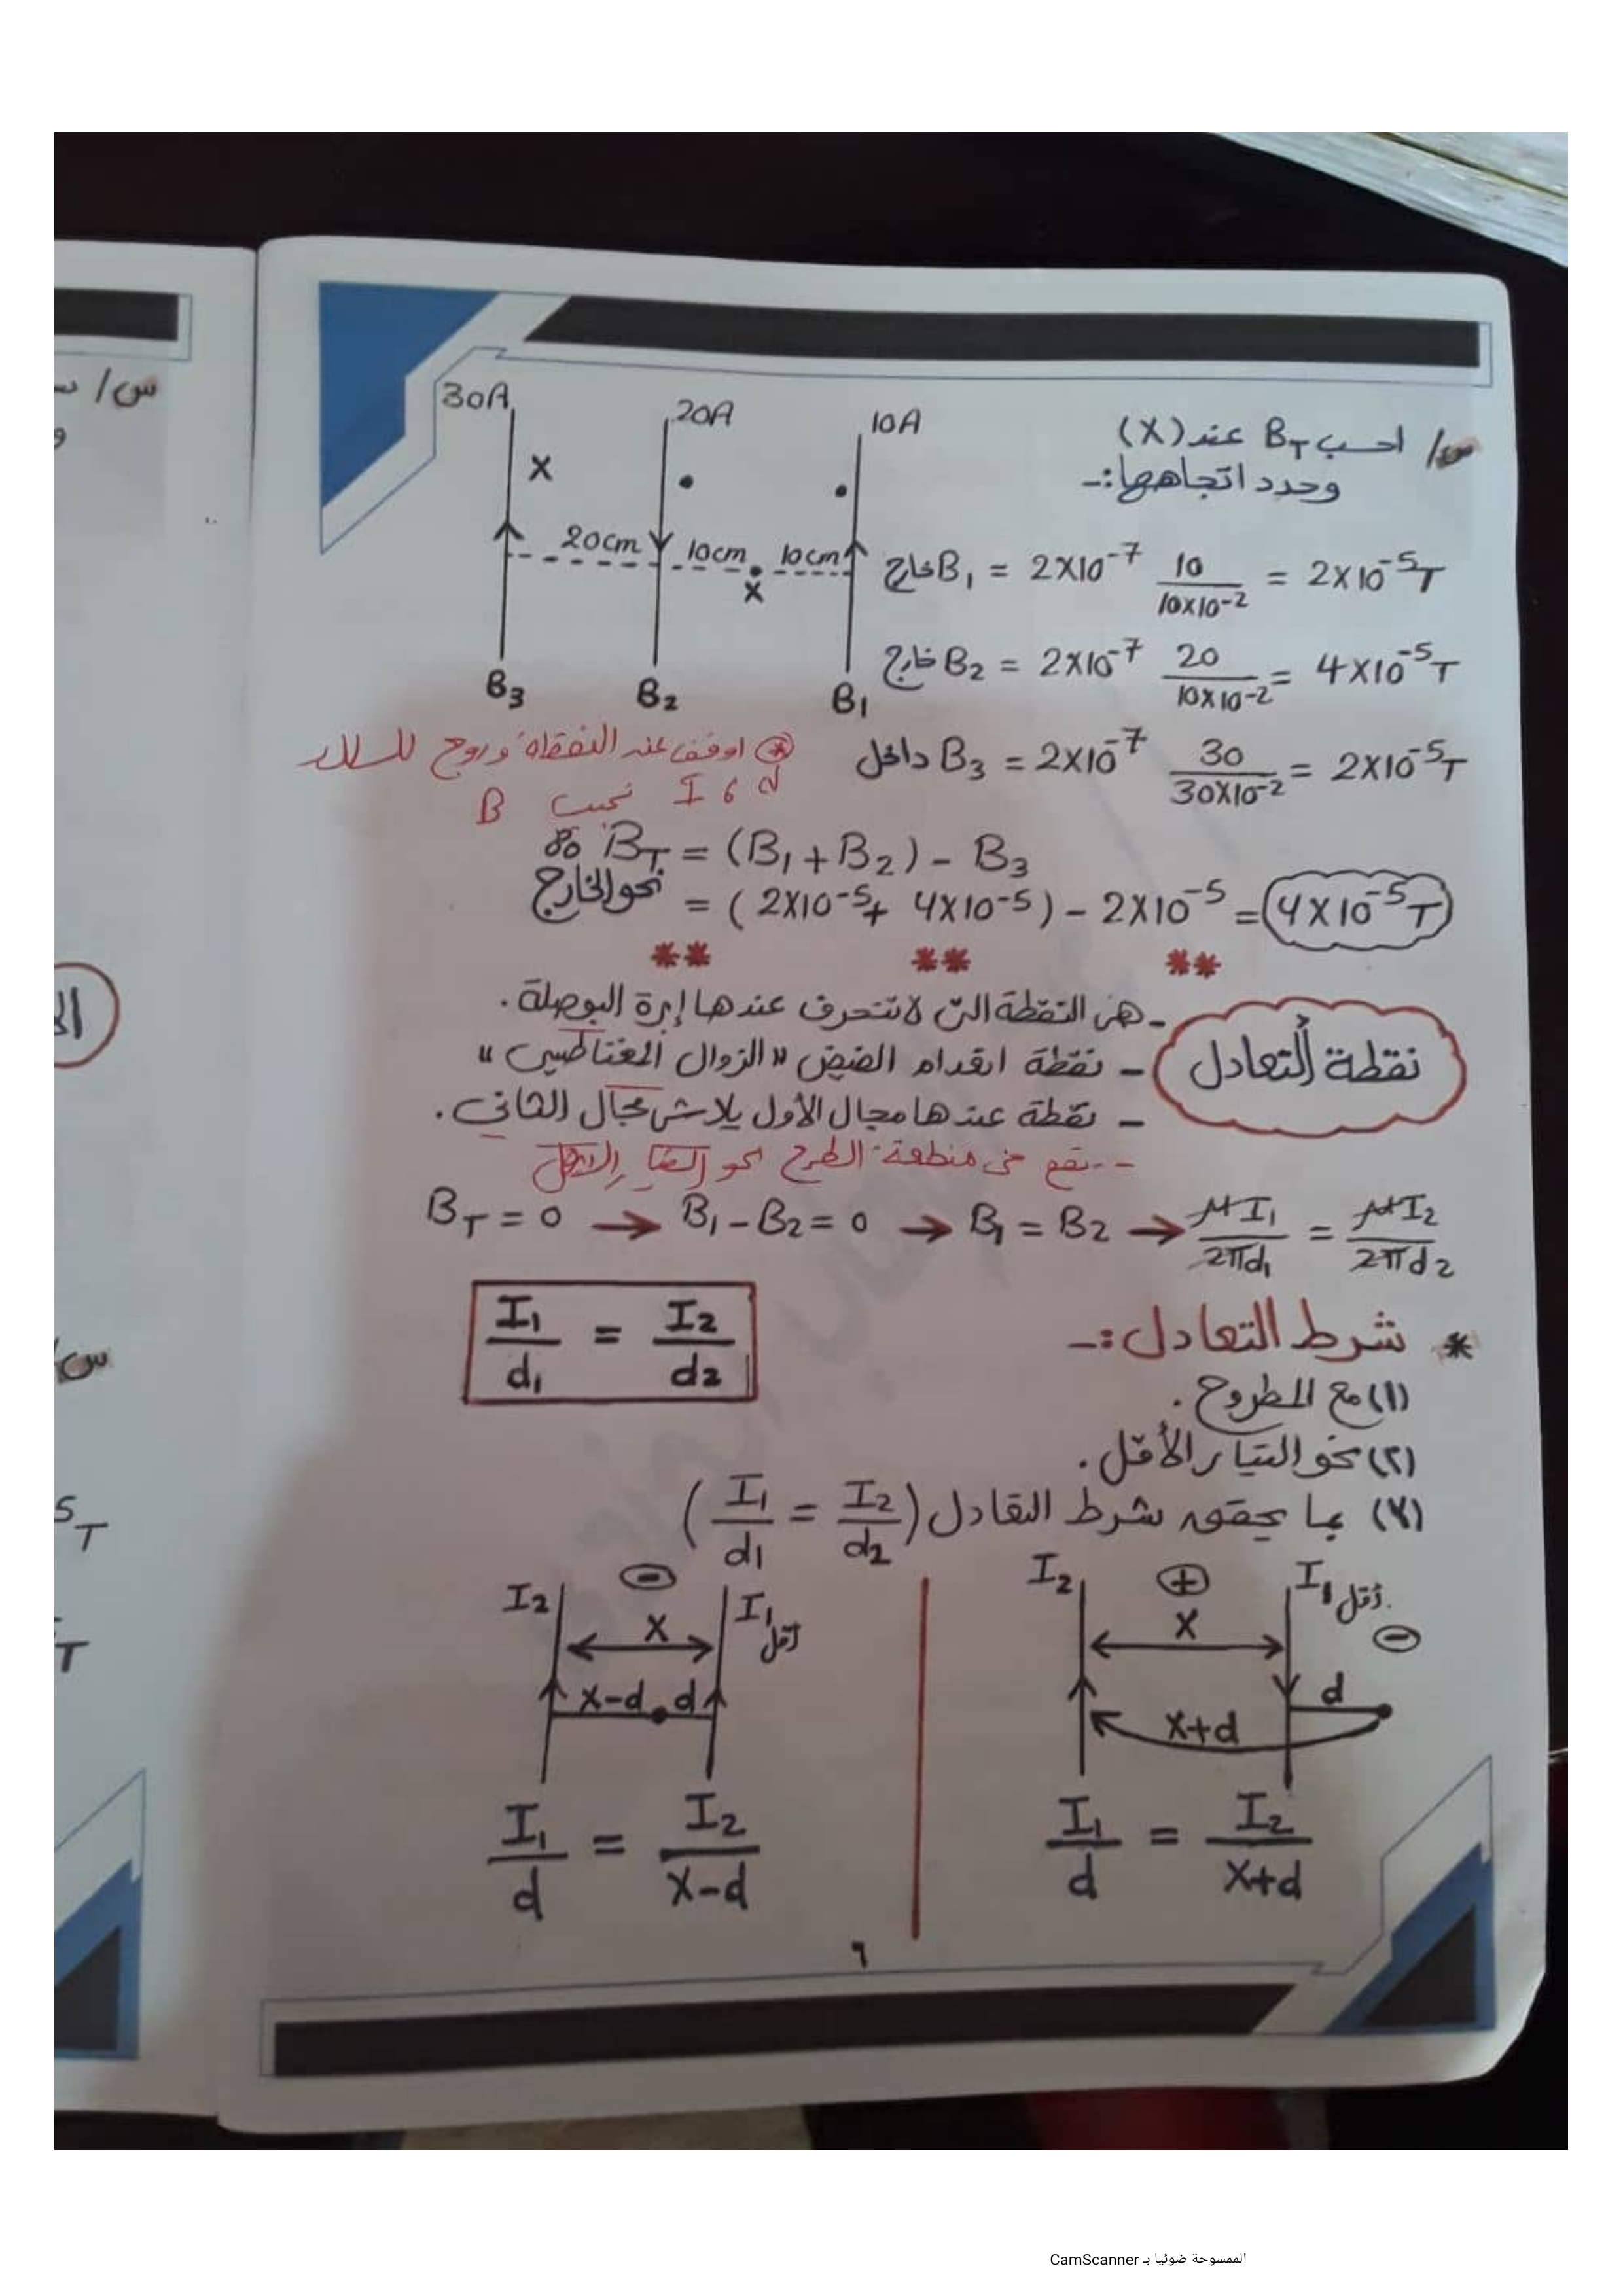 س/ احسب BT عند (X)
وحدد اتجاهها:-
30A
20A
10A
X
20cm
10cm
10cm
X
B3
B2
B1
خارج B1 = 2X10-7 10/10X10-2 = 2X10-5T
خارج B2 = 2X10-7 20/10X10-2 = 4X10-5T
داخل B3 = 2X10-7 30/30X10-2 = 2X10-5T
اوقف عند النقطة وروح للسلك
d و I تجيب B
BT = (B1 + B2) - B3
نحو الخارج = (2X10-5 + 4X10-5) - 2X10-5 = 4X10-5T
** ** **
نقطة التعادل
- هى النقطة التى لا تنحرف عندها إبرة البوصلة.
- نقطة انعدام الفيض "الزوال المغناطيسى"
- نقطة عندها مجال الأول يلاشى مجال الثانى.
-- تقع فى منطقة الطرح نحو التيار الاقل
BT = 0 → B1 - B2 = 0 → B1 = B2 → μI1/2πd1 = μI2/2πd2
I1/d1 = I2/d2
* شرط التعادل:-
(١) مع المطروح.
(٢) نحو التيار الأقل.
(٣) بما يحقق شرط التعادل (I1/d1 = I2/d2)
I2 ⊕ I1 أقل
X ⊖
d
X+d
I1/d = I2/X+d
I2 ⊖ I1 أقل
X
X-d d
I1/d = I2/X-d
٦
س/
س/
5T
T
الممسوحة ضوئيا بـ CamScanner